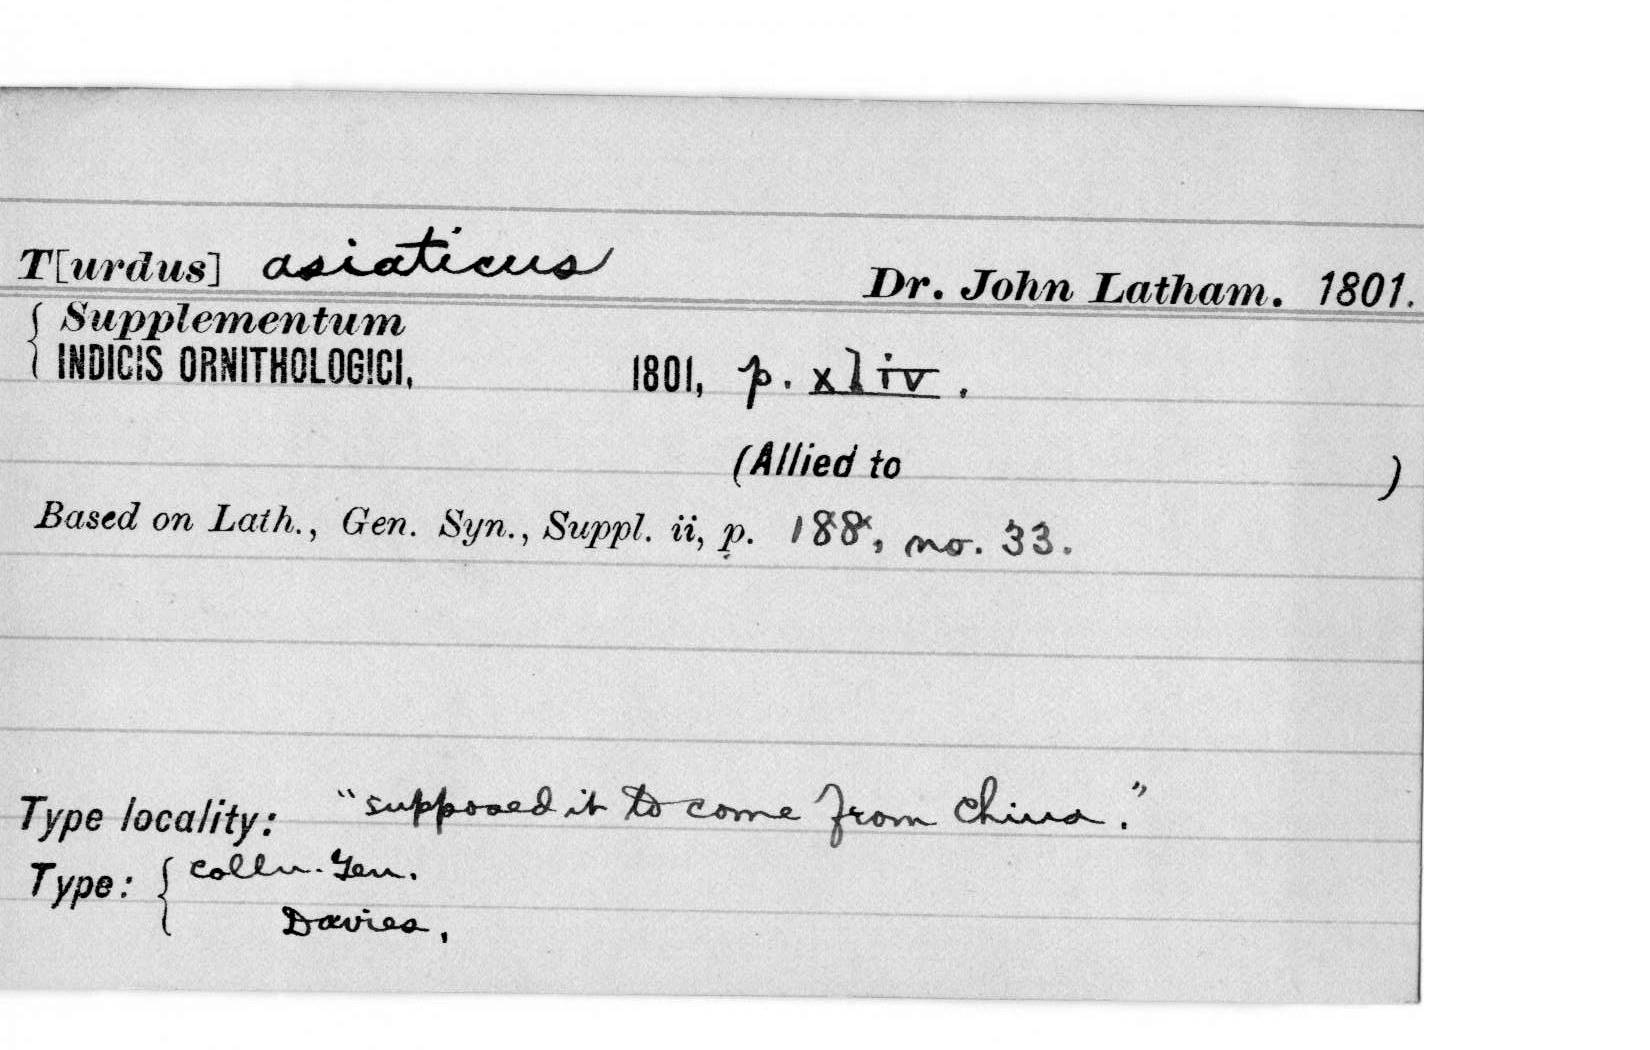 T[urdus] asiaticus Dr. John Latham. 1801.
{ Supplementum
INDICIS ORNITHOLOGICI, 1801, p. xliv.
(Allied to )
Based on Lath., Gen. Syn., Suppl. ii, p. 188, no. 33.
Type locality: "supposed it to come from China."
Type: { Colln. Gen.
Davies.